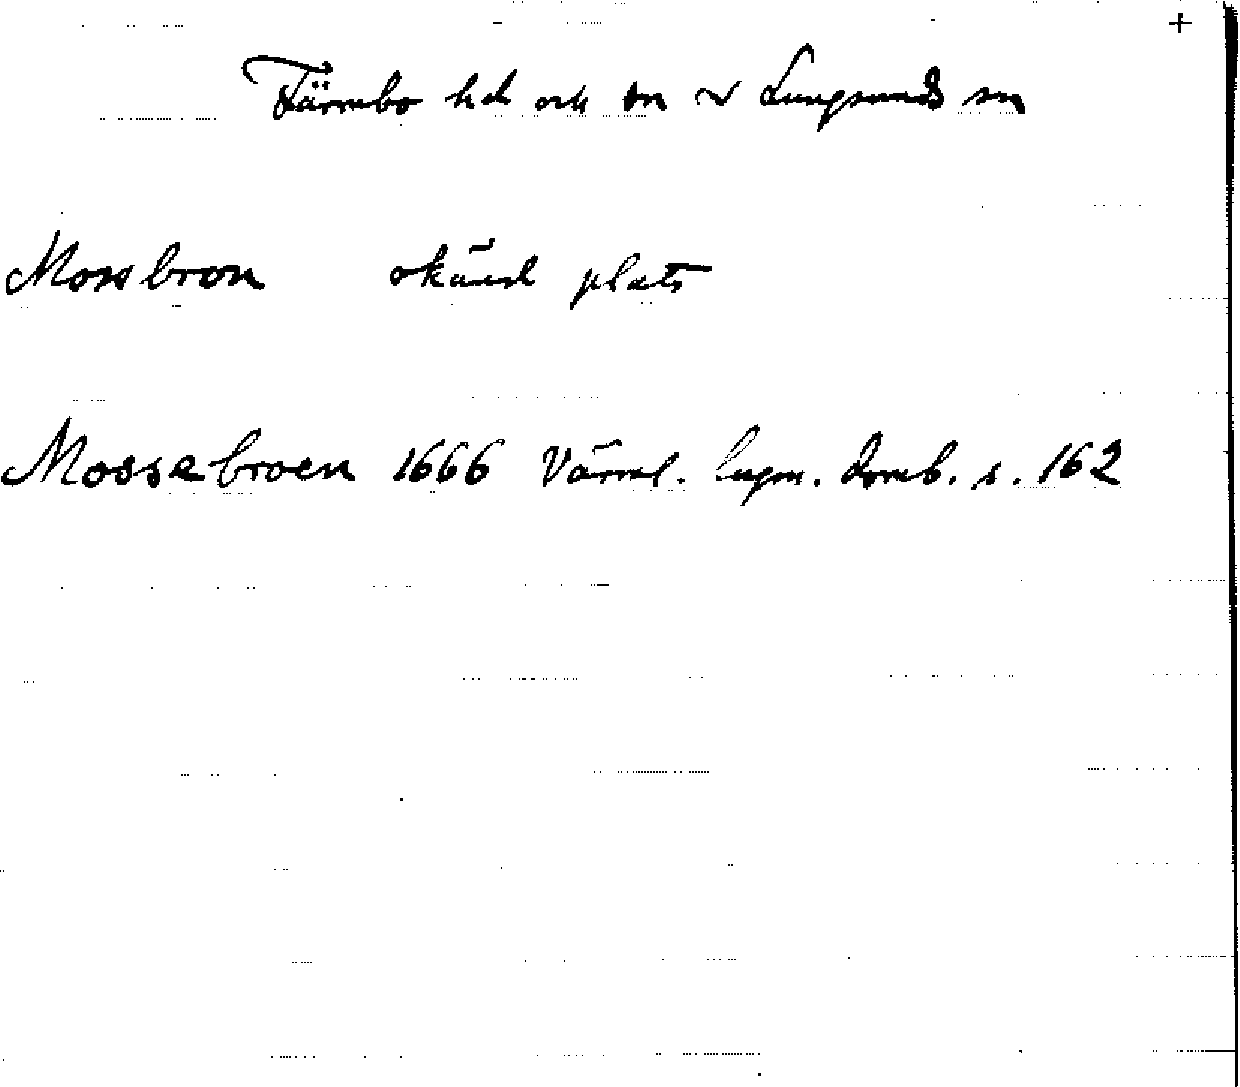 +
Färnebo hd och sn v Lungsunds sn
Mossbron okänd plats
Mossebroen 1666 Värml. lagm. domb. s. 162